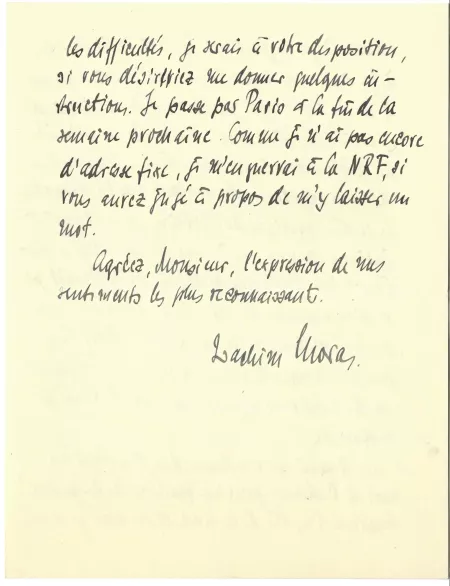 les difficultés, je serais à votre disposition,
si vous désiriez me donner quelques in-
structions. Je passe par Paris à la fin de la
semaine prochaine. Comme je n'ai pas encore
d'adresse fixe, je m'enquerrai à la NRF, si
vous aurez jugé à propos de m'y laisser un
mot.
Agréez, Monsieur, l'expression de mes
sentiments les plus reconnaissants.
Joachim Moras.